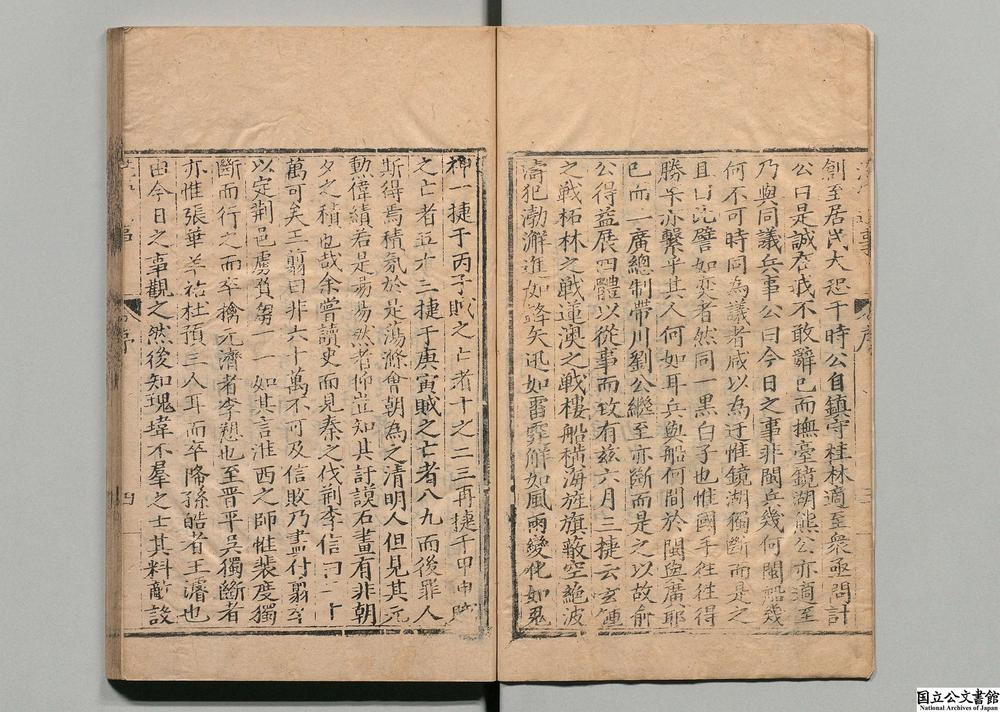 創至居民大恐于時公自鎮守桂林適至衆亟問計
公曰是誠在我不敢辭已而撫臺鏡湖熊公亦適至
乃與同議兵事公曰今日之事非閩兵幾何閩船幾
何不可時同為議者咸以為迂惟鏡湖獨斷而是之
且曰此譬如奕者然同一黑白子也惟國手往往得
勝算亦繫乎其人何如耳兵與船何間於閩與廣耶
已而一廣總制帶川劉公繼至亦斷而是之以故俞
公得益展四體以從事而致有茲六月三捷云玄鍾
之戰柘林之戰蓮澳之戰樓船橫海旌旗蔽空絶波
濤犯渤澥進如鋒矢迅如雷霆解如風雨變化如鬼
序
神一捷于丙子賊之亡者十之二三再捷于甲申賊
之亡者五六三捷于庚寅賊之亡者八九而後罪人
斯得焉積氛於是蕩滌會朝為之清明人但見其元
勲偉績若是焉揚然者抑豈知其訏謨石畫有非朝
夕之積也哉余嘗讀史而見秦之伐荆李信曰二十
萬可矣王翦曰非六十萬不可及信敗乃盡付翦卒
以定荆邑虜負芻一一如其言淮西之師惟裴度獨
斷而行之而卒擒元濟者李愬也至晋平吳獨斷者
亦惟張華羊祜杜預三人耳而卒降孫皓者王濬也
由今日之事觀之然後知瑰瑋不羣之士其料敵設
序
四
国立公文書館
National Archives of Japan